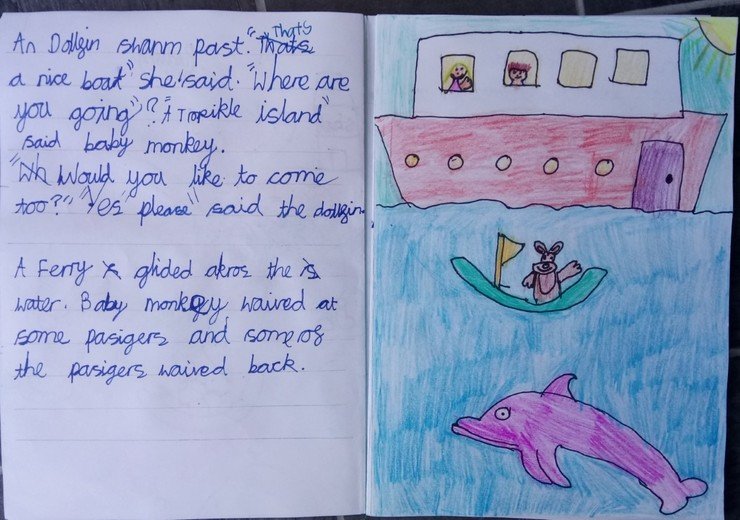 An Dollgin shanm past. "Thats Thats
a nice boat" she said. "Where are
you going"? "A Tropikle island"
said baby monkey.
"Wh Would you like to come
too?" "Yes please" said the dollgin.
A Ferry glided akros the is
water. Baby monkey waived at
some pasigers and some of
the pasigers waived back.